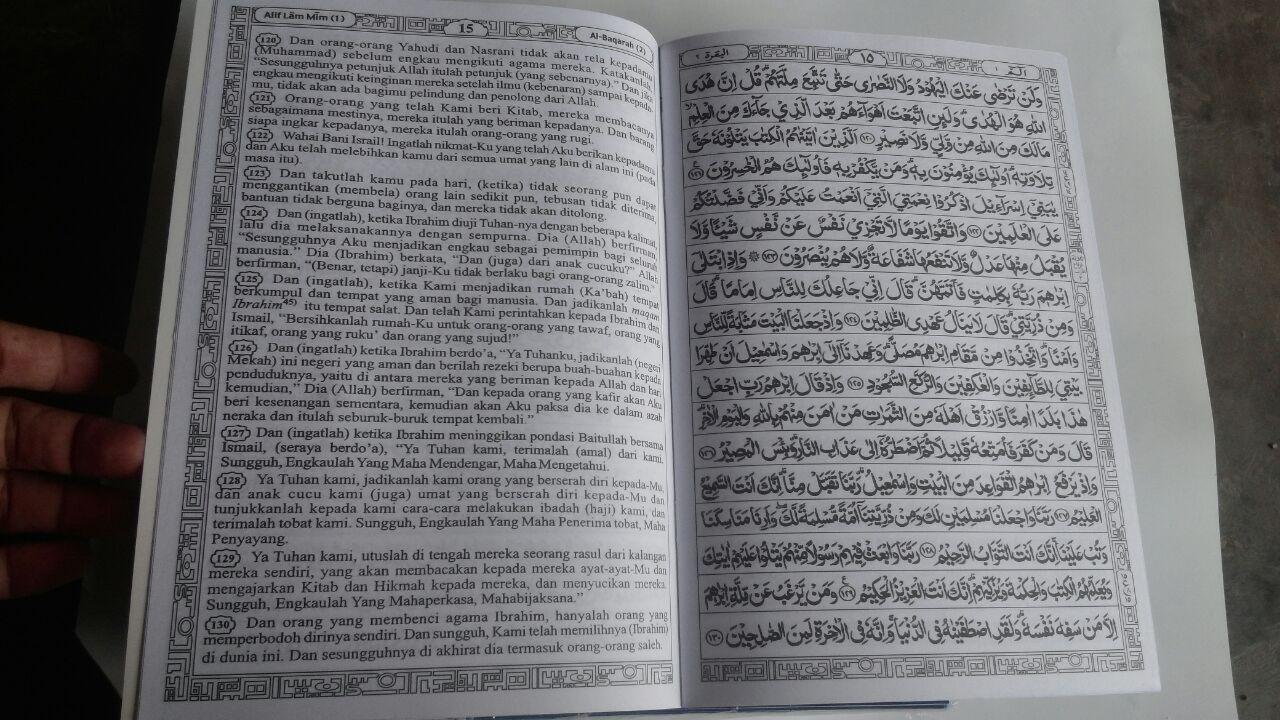 Alif Lām Mīm (1)
15
Al-Baqarah (2)
(120) Dan orang-orang Yahudi dan Nasrani tidak akan rela kepadamu
(Muhammad) sebelum engkau mengikuti agama mereka. Katakanlah,
“Sesungguhnya petunjuk Allah itulah petunjuk (yang sebenarnya).” Dan jika
engkau mengikuti keinginan mereka setelah ilmu (kebenaran) sampai kepada-
mu, tidak akan ada bagimu pelindung dan penolong dari Allah.
(121) Orang-orang yang telah Kami beri Kitab, mereka membacanya
sebagaimana mestinya, mereka itulah yang beriman kepadanya. Dan barang
siapa ingkar kepadanya, mereka itulah orang-orang yang rugi.
(122) Wahai Bani Israil! Ingatlah nikmat-Ku yang telah Aku berikan kepadamu
dan Aku telah melebihkan kamu dari semua umat yang lain di alam ini (pada
masa itu).
(123) Dan takutlah kamu pada hari, (ketika) tidak seorang pun dapat
menggantikan (membela) orang lain sedikit pun, tebusan tidak diterima,
bantuan tidak berguna baginya, dan mereka tidak akan ditolong.
(124) Dan (ingatlah), ketika Ibrahim diuji Tuhan-nya dengan beberapa kalimat,
lalu dia melaksanakannya dengan sempurna. Dia (Allah) berfirman,
“Sesungguhnya Aku menjadikan engkau sebagai pemimpin bagi seluruh
manusia.” Dia (Ibrahim) berkata, “Dan (juga) dari anak cucuku?” Allah
berfirman, “(Benar, tetapi) janji-Ku tidak berlaku bagi orang-orang zalim.”
(125) Dan (ingatlah), ketika Kami menjadikan rumah (Ka'bah) tempat
berkumpul dan tempat yang aman bagi manusia. Dan jadikanlah maqam
Ibrahim45) itu tempat salat. Dan telah Kami perintahkan kepada Ibrahim dan
Ismail, “Bersihkanlah rumah-Ku untuk orang-orang yang tawaf, orang yang
itikaf, orang yang ruku' dan orang yang sujud!”
(126) Dan (ingatlah) ketika Ibrahim berdo'a, “Ya Tuhanku, jadikanlah (negeri
Mekah) ini negeri yang aman dan berilah rezeki berupa buah-buahan kepada
penduduknya, yaitu di antara mereka yang beriman kepada Allah dan hari
kemudian,” Dia (Allah) berfirman, “Dan kepada orang yang kafir akan Aku
beri kesenangan sementara, kemudian akan Aku paksa dia ke dalam azab
neraka dan itulah seburuk-buruk tempat kembali.”
(127) Dan (ingatlah) ketika Ibrahim meninggikan pondasi Baitullah bersama
Ismail, (seraya berdo'a), “Ya Tuhan kami, terimalah (amal) dari kami.
Sungguh, Engkaulah Yang Maha Mendengar, Maha Mengetahui.
(128) Ya Tuhan kami, jadikanlah kami orang yang berserah diri kepada-Mu,
dan anak cucu kami (juga) umat yang berserah diri kepada-Mu dan
tunjukkanlah kepada kami cara-cara melakukan ibadah (haji) kami, dan
terimalah tobat kami. Sungguh, Engkaulah Yang Maha Penerima tobat, Maha
Penyayang.
(129) Ya Tuhan kami, utuslah di tengah mereka seorang rasul dari kalangan
mereka sendiri, yang akan membacakan kepada mereka ayat-ayat-Mu dan
mengajarkan Kitab dan Hikmah kepada mereka, dan menyucikan mereka.
Sungguh, Engkaulah Yang Mahaperkasa, Mahabijaksana.”
(130) Dan orang yang membenci agama Ibrahim, hanyalah orang yang
memperbodoh dirinya sendiri. Dan sungguh, Kami telah memilihnya (Ibrahim)
di dunia ini. Dan sesungguhnya di akhirat dia termasuk orang-orang saleh.
الم ١
١٥
البقرة ٢
وَلَنْ تَرْضٰى عَنْكَ الْيَهُوْدُ وَلَا النَّصٰرٰى حَتّٰى تَتَّبِعَ مِلَّتَهُمْ ۗ قُلْ اِنَّ هُدَى
اللّٰهِ هُوَ الْهُدٰى ۗ وَلَىِٕنِ اتَّبَعْتَ اَهْوَاۤءَهُمْ بَعْدَ الَّذِيْ جَاۤءَكَ مِنَ الْعِلْمِ ۙ
مَا لَكَ مِنَ اللّٰهِ مِنْ وَّلِيٍّ وَّلَا نَصِيْرٍ ١٢٠ اَلَّذِيْنَ اٰتَيْنٰهُمُ الْكِتٰبَ يَتْلُوْنَهٗ حَقَّ
تِلَاوَتِهٖ ۗ اُولٰۤىِٕكَ يُؤْمِنُوْنَ بِهٖ ۗ وَمَنْ يَّكْفُرْ بِهٖ فَاُولٰۤىِٕكَ هُمُ الْخٰسِرُوْنَ ١٢١
يٰبَنِيْٓ اِسْرَاۤءِيْلَ اذْكُرُوْا نِعْمَتِيَ الَّتِيْٓ اَنْعَمْتُ عَلَيْكُمْ وَاَنِّيْ فَضَّلْتُكُمْ
عَلَى الْعٰلَمِيْنَ ١٢٢ وَاتَّقُوْا يَوْمًا لَّا تَجْزِيْ نَفْسٌ عَنْ نَّفْسٍ شَيْـًٔا وَّلَا
يُقْبَلُ مِنْهَا عَدْلٌ وَّلَا تَنْفَعُهَا شَفَاعَةٌ وَّلَا هُمْ يُنْصَرُوْنَ ١٢٣ ۞ وَاِذِ ابْتَلٰٓى
اِبْرٰهٖمَ رَبُّهٗ بِكَلِمٰتٍ فَاَتَمَّهُنَّ ۗ قَالَ اِنِّيْ جَاعِلُكَ لِلنَّاسِ اِمَامًا ۗ قَالَ
وَمِنْ ذُرِّيَّتِيْ ۗ قَالَ لَا يَنَالُ عَهْدِى الظّٰلِمِيْنَ ١٢٤ وَاِذْ جَعَلْنَا الْبَيْتَ مَثَابَةً لِّلنَّاسِ
وَاَمْنًا ۗ وَاتَّخِذُوْا مِنْ مَّقَامِ اِبْرٰهٖمَ مُصَلًّى ۗ وَعَهِدْنَآ اِلٰٓى اِبْرٰهٖمَ وَاِسْمٰعِيْلَ اَنْ طَهِّرَا
بَيْتِيَ لِلطَّاۤىِٕفِيْنَ وَالْعٰكِفِيْنَ وَالرُّكَّعِ السُّجُوْدِ ١٢٥ وَاِذْ قَالَ اِبْرٰهٖمُ رَبِّ اجْعَلْ
هٰذَا بَلَدًا اٰمِنًا وَّارْزُقْ اَهْلَهٗ مِنَ الثَّمَرٰتِ مَنْ اٰمَنَ مِنْهُمْ بِاللّٰهِ وَالْيَوْمِ الْاٰخِرِ ۗ
قَالَ وَمَنْ كَفَرَ فَاُمَتِّعُهٗ قَلِيْلًا ثُمَّ اَضْطَرُّهٗٓ اِلٰى عَذَابِ النَّارِ ۗ وَبِئْسَ الْمَصِيْرُ ١٢٦
وَاِذْ يَرْفَعُ اِبْرٰهٖمُ الْقَوَاعِدَ مِنَ الْبَيْتِ وَاِسْمٰعِيْلُ ۗ رَبَّنَا تَقَبَّلْ مِنَّا ۗ اِنَّكَ اَنْتَ السَّمِيْعُ
الْعَلِيْمُ ١٢٧ رَبَّنَا وَاجْعَلْنَا مُسْلِمَيْنِ لَكَ وَمِنْ ذُرِّيَّتِنَآ اُمَّةً مُّسْلِمَةً لَّكَ ۖ وَاَرِنَا مَنَاسِكَنَا
وَتُبْ عَلَيْنَا ۚ اِنَّكَ اَنْتَ التَّوَّابُ الرَّحِيْمُ ١٢٨ رَبَّنَا وَابْعَثْ فِيْهِمْ رَسُوْلًا مِّنْهُمْ يَتْلُوْا عَلَيْهِمْ اٰيٰتِكَ
وَيُعَلِّمُهُمُ الْكِتٰبَ وَالْحِكْمَةَ وَيُزَكِّيْهِمْ ۗ اِنَّكَ اَنْتَ الْعَزِيْزُ الْحَكِيْمُ ١٢٩ وَمَنْ يَّرْغَبُ عَنْ مِّلَّةِ اِبْرٰهٖمَ
اِلَّا مَنْ سَفِهَ نَفْسَهٗ ۗ وَلَقَدِ اصْطَفَيْنٰهُ فِى الدُّنْيَا ۚ وَاِنَّهٗ فِى الْاٰخِرَةِ لَمِنَ الصّٰلِحِيْنَ ١٣٠